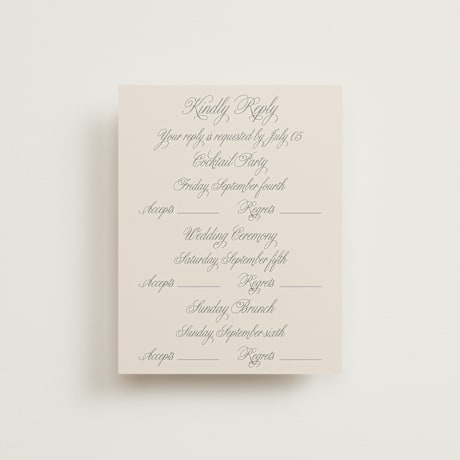 Kindly Reply
Your reply is requested by July 05
Cocktail Party
Friday, September fourth
Accepts ________ Regrets ________
Wedding Ceremony
Saturday, September fifth
Accepts ________ Regrets ________
Sunday Brunch
Sunday, September sixth
Accepts ________ Regrets ________